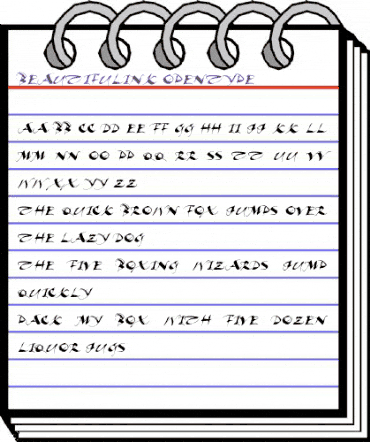 BEAUTIFULINK OPENTYPE
AA BB CC DD EE FF GG HH II JJ KK LL
MM NN OO PP QQ RR SS TT UU VV
WW XX YY ZZ
THE QUICK BROWN FOX JUMPS OVER
THE LAZY DOG
THE FIVE BOXING WIZARDS JUMP
QUICKLY
PACK MY BOX WITH FIVE DOZEN
LIQUOR JUGS